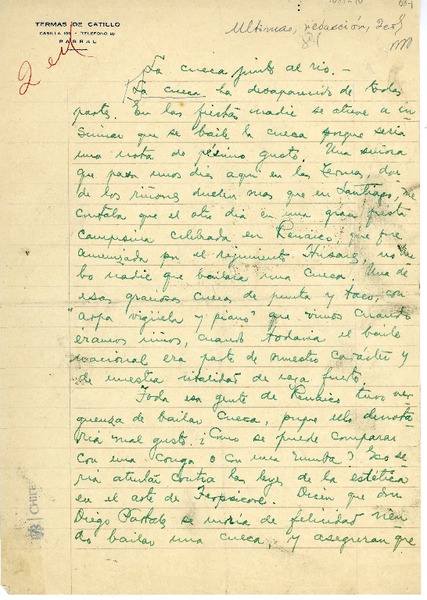 TERMAS DE CATILLO
CASILLA 199 - TELEFONO
PARRAL
Ultimas, redacción, 2 col
2 col
La cueca junto al río.-
La cueca ha desaparecido de todas
partes. En las fiestas nadie se atreve a in
sinuar que se baile la cueca porque sería
una nota de pésimo gusto. Una señora
que pasa unos días aquí en las Termas, don
de los riñones duelen mas que en Santiago, me
contaba que el otro día en una gran fiesta
campesina celebrada en Renaico, que fue
amenizada por el regimiento Húsares, no hu
bo nadie que bailara una cueca. Una de
esas graciosas cuecas de punta y taco, con
"arpa vigüela y piano" que vimos cuando
éramos niños, cuando todavía el baile
nacional era parte de nuestro carácter y
de nuestra vitalidad de raza fuerte.
Toda esa gente de Renaico tuvo ver
guenza de bailar cueca, porque ello denota
ría mal gusto. ¿Cómo se puede comparar
con una Conga o con una Rumba? Eso se
ría atentar contra las leyes de la estética
en el arte de Terpsícore. Dicen que don
Diego Portales se moría de felicidad vien
do bailar una cueca, y aseguran que
CHILE